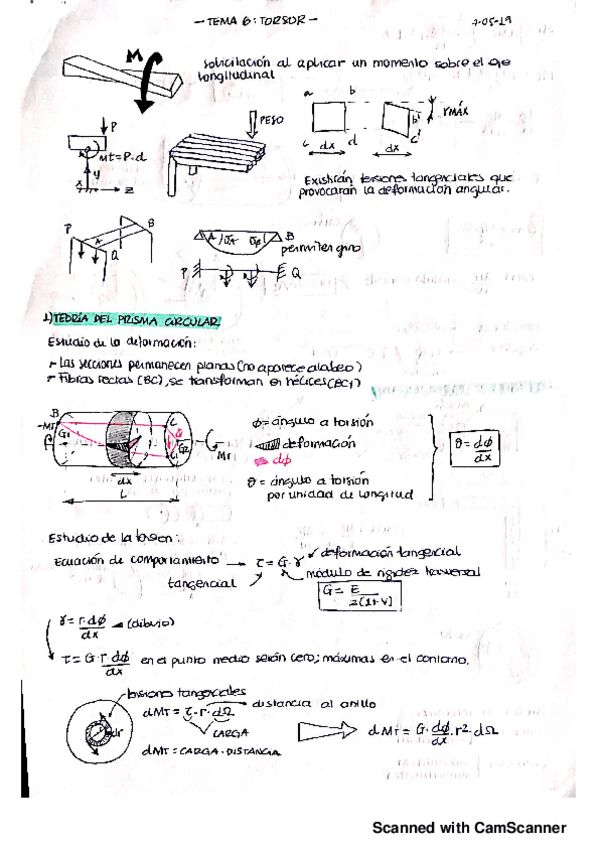 - TEMA 6: TORSOR -
7-05-19
M
solicitación al aplicar un momento sobre el eje
longitudinal
P
Mt=P.d
y
x
z
PESO
a b
c dx d
b'
c'
dx
γMÁX
Existirán tensiones tangenciales que
provocarán la deformación angular.
P
A
B
Q
A
B
permiten giro
P
Q
1) TEORÍA DEL PRISMA CIRCULAR
Estudio de la deformación:
- Las secciones permanecen planas (no aparece alabeo)
- Fibras rectas (BC), se transforman en hélices (BC1)
B
-MT
G1
C
G2
C1
MT
dx
L
ϕ = ángulo a torsión
deformación
dϕ
θ = ángulo a torsión
por unidad de longitud
θ = dϕ/dx
Estudio de la torsion:
Ecuación de comportamiento → τ = G·γ
deformación tangencial
tangencial
módulo de rigidez trasversal
G = E/2(1+ν)
γ = r·dϕ/dx → (dibujo)
τ = G·r·dϕ/dx en el punto medio serán cero; máximas en el contorno.
tensiones tangenciales
dr
dMT = τ·r·dΩ
distancia al anillo
CARGA
dMT = CARGA·DISTANCIA
dMT = G·dϕ/dx·r²·dΩ
Scanned with CamScanner